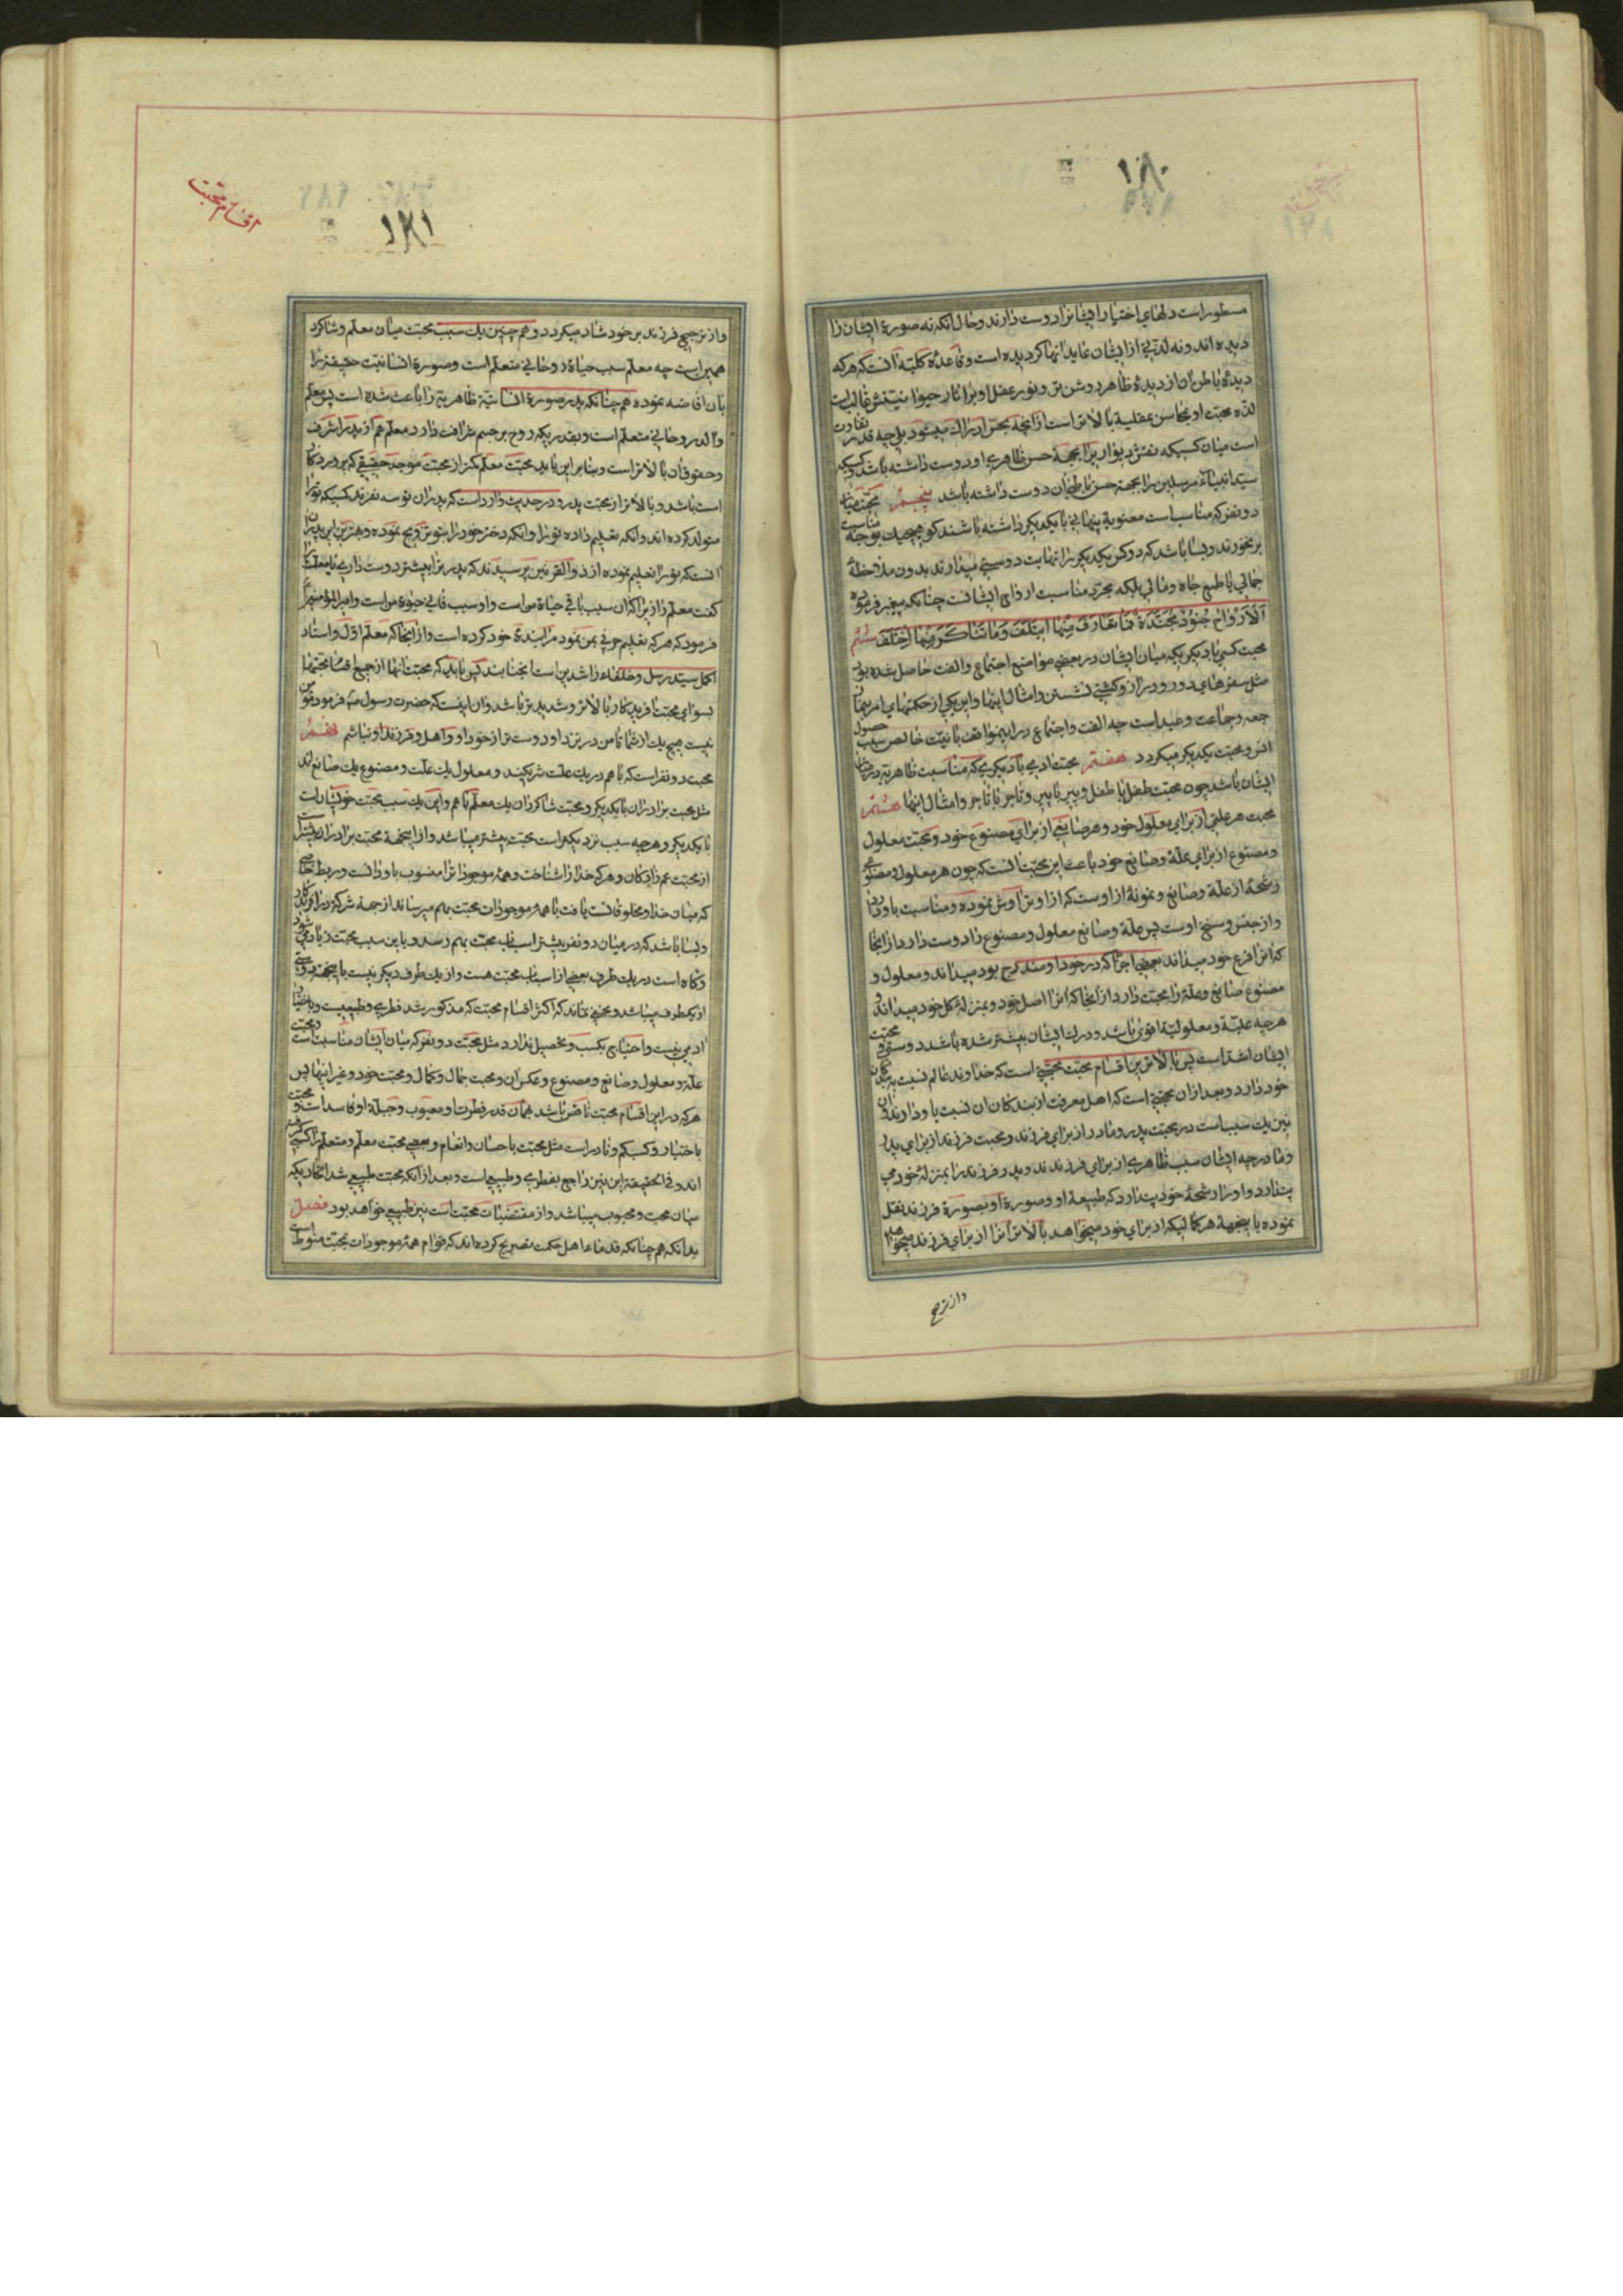 ۱۸۰
مسطور است دلهای اختیار ایشانرا دوست دارند و حال آنکه نه صورة ایشان را
دیده اند و نه لذتی از ایشان عاید آنها کردیده است و قاعدهٔ کلیه آنست که هر که
دیدهٔ باطن آن از دیدهٔ ظاهر روشن تر و نور عقل او بر آثار حیوانیتش غالب است
لذة محبت او بمحاسن عقلیة بالاتر است از آنچه بحس ادراک میشود بلی چه قدر تفاوت
است میان کسیکه نقش دیوار را بجهة حسن ظاهری او دوست داشته باشد و کسیکه
سید انبیاء مرسلین را بجهة حسن باطنی آن دوست داشته باشد پنجم محبت میان
دو نفر که مناسبات معنویة پنهانی با یکدیکر داشته باشند کو هیچیک بوجه مناسبت
برنخورند و بسا باشد که دو کس یکدیکر را نهایت دوستی میدارند بدون ملاحظهٔ
جمالی یا طمع جاه و مالی بلکه مجرد مناسبت ارواح ایشانست چنانکه پیغمبر فرموده
اَلْاَرْواحُ جُنُودٌ مُجَنَّدَةٌ فَما تَعارَفَ مِنْها ایتَلَفَ وَما تَناکَرَ مِنْها اِخْتَلَفَ ششم
محبت کسی با دیکری که میان ایشان در بعضی مواضع اجتماع و الفت حاصل شده بود
مثل سفرهای دور و دراز و کشتی نشستن و امثال اینها و این یکی از حکمتهای امر بنماز
جمعه و جماعت و عید است چه الفت و اجتماع در این مواقف با نیت خالص سبب حصول
انس و محبت یکدیکر میکردد هفتم محبت ادمی با دیکری که مناسبت ظاهریة در میان
ایشان باشد چون محبت طفل با طفل و پیر با پیر و تاجر با تاجر و امثال اینها هشتم
محبت هر علتی از برای معلول خود و هر صانعی از برای مصنوع خود و محبت معلول
و مصنوع از برای علة و صانع خود باعث این محبت آنست که چون هر معلول و مصنوعی
رشحهٔ از علة و صانع و نمونهٔ از اوست که از او تراوش نموده و مناسبت باو دارد
و از جنس و سنخ اوست پس علة و صانع معلول و مصنوع را دوست دارد از آنجا
که آنرا فرع خود میداند بعضی اجزا که در خود او مندرج بود میداند و معلول و
مصنوع صانع و علة را محبت دارد از آنجا که آنرا اصل خود و بمنزلهٔ کل خود میداند و
هر چه علیة و معلولیة اقوی باشد و درک ایشان بیشتر شده باشد دوستی و محبت
ایشان اشد است پس بالاترین اقسام محبت محبتی است که خداوند عالم نسبت به بندکان
خود دارد و بعد از ان محبتی است که اهل معرفت از بندکان ان نسبت باو دارند و ان
نیز یک سبب است در محبت پدر و مادر از برای فرزند و محبت فرزند از برای پدر
و مادر چه ایشان سبب ظاهری از برای فرزندند و پدر فرزند را بمنزلهٔ خود می
پندارد و او را رشحهٔ خود پندارد که طبیعة او و صورة او بصورة فرزند نقل
نموده باین جهة هر کمالیکه از برای خود میخواهد بالاتر آنرا از برای فرزند میخواهد
و از ترجیح
اقسام محبت
۱۸۱
و از ترجیح فرزند بر خود شاد میکردد و همچنین یک سبب محبت میان معلم و شاکرد
همین است چه معلم سبب حیاة روحانی متعلم است و صورة انسانیت حقیقة را
بان افاضه نموده همچنانکه پدر صورة انسانیة ظاهریة را باعث شده است پس معلم
والد روحانی متعلم است و بقدریکه روح بر جسم شرافت دارد معلم هم از پدر اشرف
و حقوق ان بالاتر است و بنا بر این باید محبت معلم کمتر از محبت موجد حقیقی که پروردکار
است باشد و بالاتر از محبت پدر و در حدیث وارد است که پدران تو سه نفرند کسیکه تو را
متولد کرده اند و انکه تعلیم داده تو را و انکه دختر خود را بتو تزویج نموده و بهترین این پدران
آنست که تو را تعلیم نموده از ذوالقرنین پرسیدند که پدر را بیشتر دوست داری یا معلم را
کفت معلم را زیرا که ان سبب باقی حیاة من است و او سبب فانی حیوة من است و امیر المؤمنین
فرمود که هر که تعلیم حرفی بمن نمود مرا بندهٔ خود کرده است و از آنجا که معلم اول و استاد
اکمل سید رسل و خلفاء راشدین است انجنابند پس باید که محبت انها از جمیع اقسام محبتها
بسوای محبت افریدکار بالاتر و شدیدتر باشد و ان اینست که حضرت رسول فرمود مؤمن
نیست هیچ یک از شما تا من در نزد او دوست تر از خود او و اهل و فرزند او نباشم نهم
محبت دو نفر است که با هم در یک علت شریکند و معلول یک علت و مصنوع یک صانع اند
مثل محبت برادران با یکدیکر و محبت شاکردان یک معلم با هم و این یک سبب محبت خویشان است
با یکدیکر و هر چه سبب نزدیکتر است محبت بیشتر میباشد و از اینجهة محبت برادران بیشتر است
از محبت عم زادکان و هر که خدا را شناخت و همهٔ موجودات را منسوب باو دانست و ربط خاصی
که میان خدا و مخلوقاتست یافت با همهٔ موجودات محبت بهم میرساند از جهة شرکت در افریدکار
و بسا باشد که در میان دو نفر بیشتر اسباب محبت بهم رسد و باین سبب محبت زیاد میشود
و کاه است در یک طرف بعضی از اسباب محبت هست و از یک طرف دیکر نیست باینجهة دوستی
از یکطرف میباشد و مخفی نماند که اکثر اقسام محبت که مذکور شد فطری و طبیعیست و باختیار
ادمی نیست و احتیاج بکسب و تحصیل ندارد مثل محبت دو نفر که میان ایشان مناسبت است و محبت
علة و معلول و صانع و مصنوع و عکس ان و محبت جمال و کمال و محبت خود و غیر اینها پس
هر که در این اقسام محبت ناقص باشد همان قدر فطرت او معیوب و جبلة او فاسد است و محبت
باختیار و کسب کم و نادر است مثل محبت باحسان و انعام و بعضی محبت معلم و متعلم را کسبی
اند و فی الحقیقة این نیز راجع بفطری و طبیعی است و بعد از آنکه محبت طبیعی شد اتحادیکه
میان محب و محبوب میباشد و از مقتضیات محبت است نیز طبیعی خواهد بود فصل
بدانکه همچنانکه قدماء اهل حکمت تصریح کرده اند که قوام همهٔ موجودات بمحبت منوط است